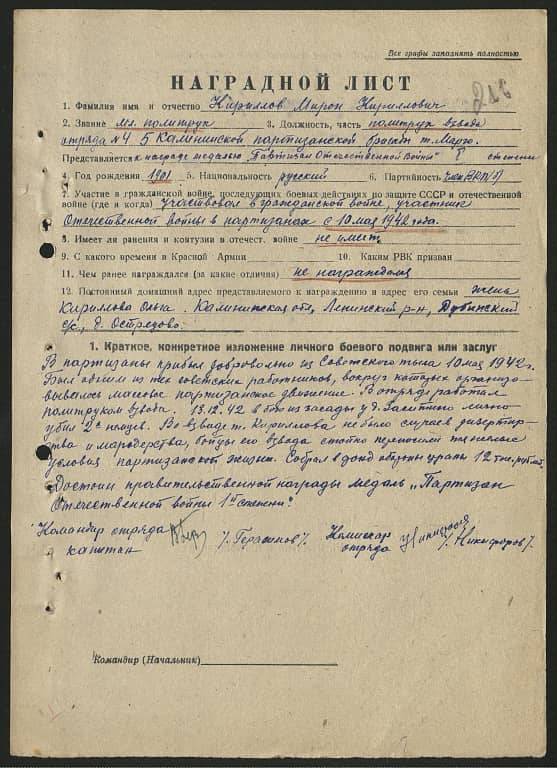 Все графы заполнять полностью
НАГРАДНОЙ ЛИСТ
1. Фамилия имя и отчество Кириллов Мирон Кириллович
2. Звание мл. политрук 3. Должность, часть политрук взвода
отряда №4 5 Калининской партизанской бригады т. Марго.
Представляется к награде медалью "Партизан Отечественной Войны" I степени
4. Год рождения 1901 5. Национальность русский 6. Партийность член ВКП(б)
7. Участие в гражданской войне, последующих боевых действиях по защите СССР и отечественной
войне (где и когда) Участвовал в гражданской войне, участник
Отечественной войны в партизанах с 10 мая 1942 года.
8. Имеет ли ранения и контузии в отечест. войне не имеет
9. С какого времени в Красной Армии 10. Каким РВК призван
11. Чем ранее награждался (за какие отличия) не награждался
12. Постоянный домашний адрес представляемого к награждению и адрес его семьи жена
Кириллова Ольга. Калининская обл, Ленинский р-н, Дубинский
с/с, д. Острядово.
1. Краткое, конкретное изложение личного боевого подвига или заслуг
В партизаны прибыл добровольно из Советского тыла 10 мая 1942 г.
Был одним из тех советских работников, вокруг которых организо-
вывалось массовое партизанское движение. В отряде работал
политруком взвода. 13.12.42 в бою из засады у д. лично
убил 2х немцев. Во взводе т. Кириллова не было случаев дизертир-
ства и мародерства, бойцы его взвода стойко переносили тяжелые
условия партизанской жизни. Собрал в фонд обороны страны 12 тыс. рублей.
Достоин правительственной награды медаль "Партизан
Отечественной войны 1й степени".
Командир отряда /.Герасимов/. Комиссар /.Никифоров/.
капитан отряда
Командир (Начальник)